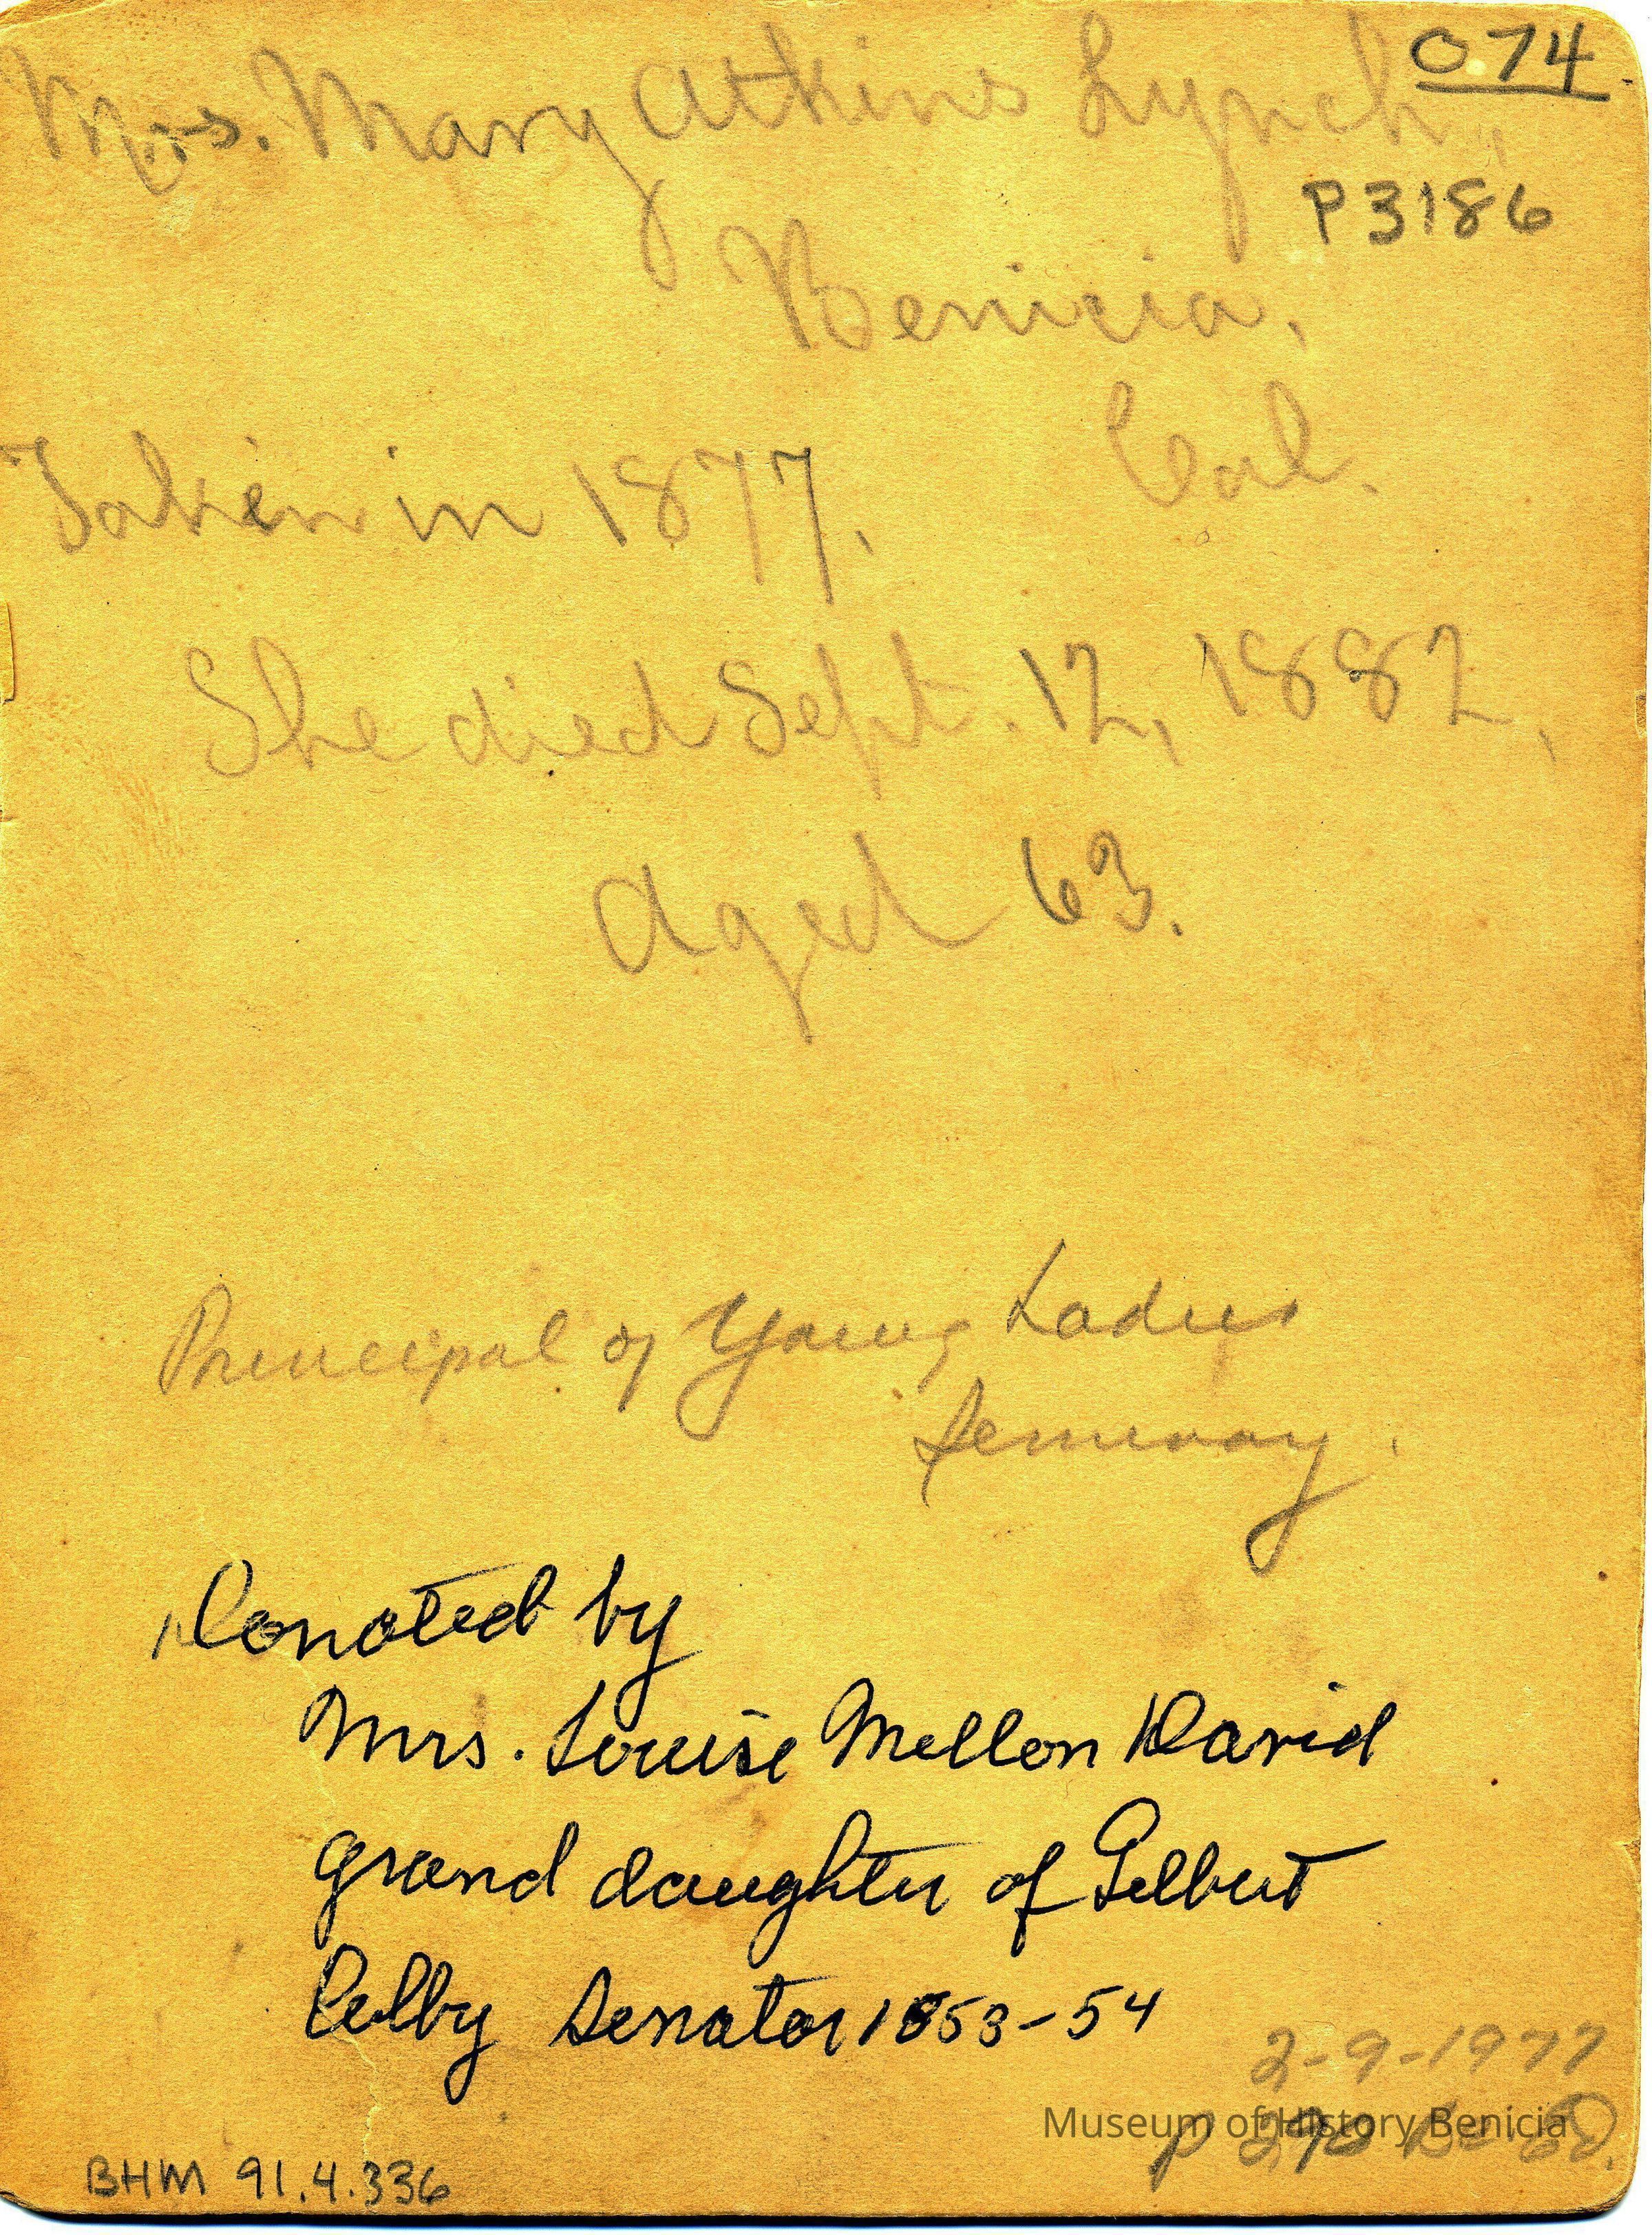 074
Mrs. Mary Atkins Lynch,
P3186
Benicia,
Cal.
Taken in 1877.
She died Sept. 12, 1882,
Aged 63.
Principal of Young Ladies
Seminary.
Donated by
Mrs. Louise Mellon David
grand daughter of Gilbert
Senator 1853-54
2-9-1977
Museum of History Benicia
BHM 91.4.336